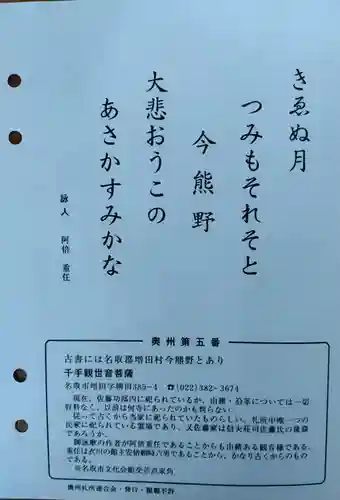 きゑぬ月
つみもそれそと
今熊野
大悲おうこの
あさかすみかな
詠人 阿倍 重任
奥州第五番
古書には名取郡増田村今熊野とあり
千手観世音菩薩
名取市増田字柳田385-4 ☎(022)382-3674
現在、佐藤功邸内に祀られているが、由緒・沿革については一切
資料なく、以前は何寺にあったのかも判らない。
従って古くから当家に祀られていたものらしい。札所中唯一つの
民家に祀られている霊場であり、又佐藤家は信夫荘司佐藤氏の後裔
であろうか。
御詠歌の作者が阿倍重任であることからも由緒ある観音様である。
重任は衣川の館主安倍頼時六男であることから、かなり古くからのもの
である。
※名取市文化会館交差点東角
奥州札所連合会・発行・複製不許